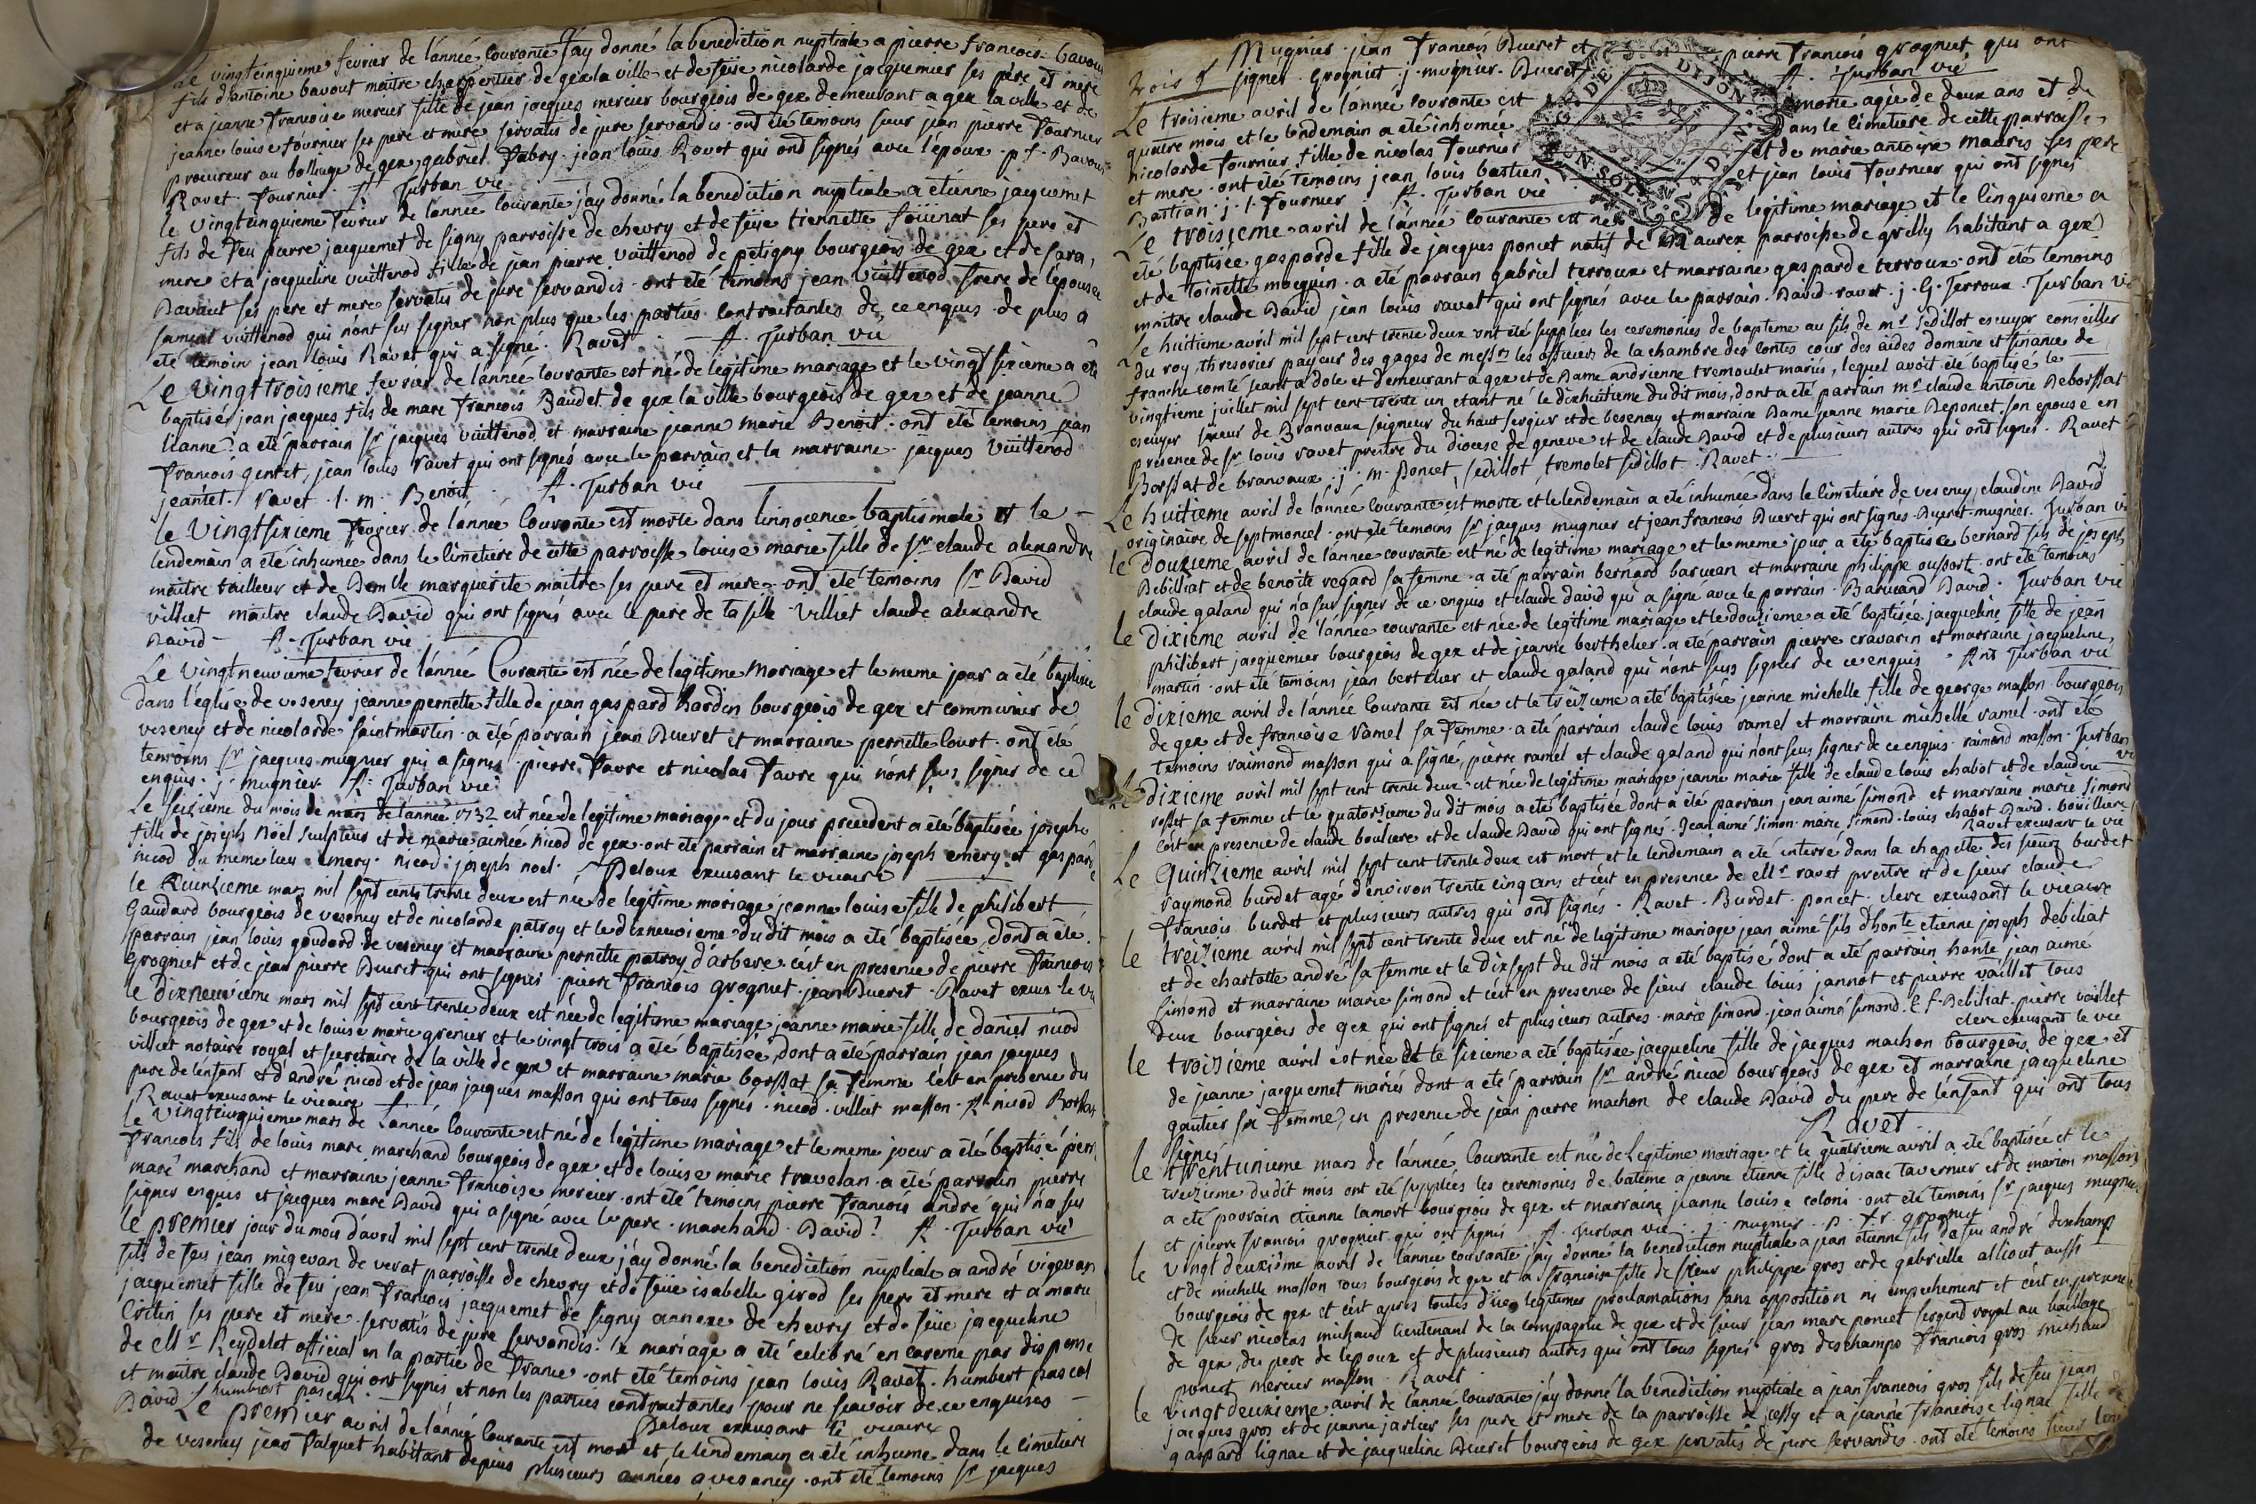 Le vingtcinquieme fevrier de lánnée courante J'ay donné la benediction nuptiale a pierre francois bavout
fils d'antoine bavout maitre charpentier de gex la ville et de feüe nicolarde jacquemier ses pere et mere
et a jeanne francoise mercier fille de jean jacques mercier bourgeois de gex demeurant a gex la ville et de
jeanne louise fournier ses pere et mere servatis de jure servandis ont été temoins sieur jean pierre fournier
procureur au bailliage de gex gabriel fabry jean louis Ravet qui ont signés avec l'époux p f Bavout
Ravet fournier A Turban vic
le vingtcinquieme fevrier de lánnée courante jáy donné la benediction nuptiale a etienne jacquemet
fils de feu pierre jacquemet de signy parroisse de chevry et de feüe tiennette ses pere et
mere et a jacqueline vuittenod fille de jean pierre vuittenod de petigny bourgeois de gex et de sara
Davaut ses pere et mere servatis de jure servandis ont été temoins jean vuittenod frere de lépouse
samuel vuittenod qui nónt sus signer non plus que les parties contractantes de ce enquis de plus a
eté temoin jean louis Ravet qui a signé Ravet A Turban vic
Le vingttroisieme fevrier de lánnée courante est né de legitime mariage et le vingt sixieme a eté
baptisér jean jacques fils de marc francois Baudet de gex la ville bourgeois de gex et de jeanne
lianne a eté parrain sr jacques vuittenod et marraine jeanne marie Benoit ont été temoins jean
francois gentet, jean louis ravet qui ont signés avec le parrain et la marraine jacques vuittenod
jeantet ravet l m Benoit A Turban vic
le vingtsixieme fevrier de lánnée courante est morte dans linnocence baptismale et le
lendemain a eté inhumée dans le cimetiere de cette parroisse louise marie fille de sr claude alexandre
maitre tailleur et de Demlle marguerite maitre ses pere et mere ont été temoins sr David
villiet maitre claude David qui ont signés avec le pere de la fille villiet claude alexandre
David A Turban vic
Le vingtneuvieme fevrier de lánnée Courante est née de legitime mariage et le meme jour a été baptisée
dans l'église de veseney jeanne pernette fille de jean gaspard hardin bourgeois de gex et communier de
veseney et de nicolarde saint martin a eté parrain jean Dueret et marraine pernette Court ont été
temoins sr jacques mugnier qui a signés pierre favre et nicolas favre qui nónt sus signer de ce
enquis j mugnier A Turban vic
Le seizieme du mois de mars de lánnée 1732 est née de legitime mariage et du jour precedent a été baptisée josephe
fille de joseph Nöel sculpteur et de marie aimée nicod de gex ont été parrain et marraine joseph emery et gasparde
nicod du meme lieu emery nicod joseph noel Deloux excusant le vicaire
le Quinzieme mars mil sept cents trente deux est née de legitime mariage jeanne louise fille de philibert
Gaudard bourgeois de veseney et de nicolarde patroy et le dixneuvieme du dit mois a été baptisée, dont a été
parrain jean louis gaudard de veseney et marraine pernette patroy d'arbere cést en presence de pierre francois
Grogniet et de jean pierre Dueret qui ont signés pierre francois grogniet jean Dueret Ravet excus le vic
le dixneuvieme mars mil sept cent trente deux est née de legitime mariage jeanne marie fille de daniel nicod
bourgeois de gex et de louise marie grenier et le vingt trois a eté baptisée, dont a été parrain jean jacques
villiet notaire royal et secretaire de la ville de gex et marraine marie borssat sa femme cést en presence du
pere de lénfant et d'andré nicod et de jean jacques masson qui ont tous signés nicod villiet masson A nicod Borssat
Ravet excusant le vicaire
le vingtcinquieme mars de Lánnée Courante est né de legitime mariage et le meme jour a été baptisé pierre
francois fils de louis marc marchand bourgeois de gex et de louise marie travelan a été parrain pierre
marc marchand et marraine jeanne francoise mercier ont été temoins pierre francois andré qui ná sus
signer enquis et jacques marc David qui a signé avec le pere marchánd David A Turban vic
le premier jour du mois dávril mil sept cent trente deux jáy donné la benediction nuptiale a andré migevan
fils de feu jean migevan de verat parroisse de chevry et de feüe isabelle girod ses pere et mere et a marie
jacquemet fille de feu jean francois jacquemet de signy annexe de chevry et de feüe jacqueline
ses pere et mere servatis de jure servandis le mariage a été celebré en careme par dispense
de Mr Reydelet official en la partie de france ont été temoins jean louis Ravet humbert pascal
et maitre claude David qui ont signés et non les parties contractantes pour ne scavoir de ce enquises
David humbert pascal Deloux excusant le vicaire
Le premier avril de lánnée courante est mort et le lendemain a eté inhumé dans le cimetiere
de veseney jean falquet habitant depuis plusieurs années a veseney ont été temoins sr jacques
Mugnier jean francois Dueret et pierre francois grogniet qui ont
trois f signés Grogniet j mugnier Dueret A Turban vic
Le troisieme avril de lánnée courante est morte agée de deux ans et de
quatre mois et le lendemain a été inhumée dans le cimetiere de cette parroisse
nicolarde fournier fille de nicolas fournier et de marie antoine mariés ses pere
et mere ont été temoins jean louis bastien et jean louis fournier qui ont signés
Bastian j l fournier A Turban vic
Le troisieme avril de lánnée courante est née de legitime mariage et le cinquieme a
été baptisée gasparde fille de jacques poncet natif de Maurex parroisse de grilly habitant a gex
et de toinette moequin a été parrain gabriel terroux et marraine gasparde terroux ont été temoins
maitre claude David jean louis ravet qui ont signés avec le parrain David ravet j G Terroux Turban vic
Le huitieme avril mil sept cent trente deux ont été supplées les ceremonies de bapteme au fils de mr sedillot escuyer conseiller
du roy thresorier payeur des gages de messrs les officiers de la chambre des contes cour des aides domaine et finance de
franche comté seant a dole et demeurant a gex et de Dame andrienne tremoulet mariés, lequel avoit été baptisé le
vingtieme juillet mil sept cent trente un etant né le dixhuitieme du dit mois, dont a été parrain mr claude antoine Deborssat
escuyer sieur de Branvaux seigneur du haut sergier et de besenay et marraine Dame jeanne marie Deponcet son epouse en
presence de sr louis ravet prestre du diocese de geneve et de claude David et de plusieurs autres qui ont signés Ravet
Borssat de branvaux j m Poncet sedillot tremolet sedillot Ravet
Le huitieme avril de lánnée courante est morte et le lendemain a été inhumée dans le cimetiere de veseney claudine David
originaire de septmoncel ont été temoins sr jacques mugnier et jean francois Dueret qui ont signes Dueret mugnier Turban vic
le Douzieme avril de lánnée courante est né de legitime mariage et le meme jour a été baptisée bernard fils de joseph
Debilliat et de benoite regard sa femme a été parrain bernard baruean et marraine philippe oussort ont été temoins
claude galand qui ná sus signer de ce enquis et claude david qui a signé avec le parrain David Turban vic
le Dixieme avril de lánnée courante est née de legitime mariage et le douzieme a été baptisée jacqueline fille de jean
philibert jacquemier bourgeois de gex et de jeanne berthelier a été parrain pierre cravarin et marraine jacqueline
martin ont été temoins jean berthelier et claude galand qui nónt sus signer de ce enquis Ant Turban vic
le dixieme avril de lánnée Courante est née et le treizieme a été baptisée jeanne michelle fille de george masson bourgeois
de gex et de francoise Ramel sa femme a été parrain claude louis ramel et marraine michelle ramel ont été
temoins raimond masson qui a signé, pierre ramel et claude galand qui nónt sus signer de ce enquis raimond masson Turban vic
Le dixieme avril mil sept cent trente deux est née de legitime mariage jeanne marie fille de claude louis chabot et de claudine
rosset sa femme et le quatorzieme du dit mois a été baptisée dont a été parrain jean aimé simond et marraine marie simond
cést en presence de claude bouliere et de claude David qui ont signés Jean aimé simon marie simond louis chabot David boüillere
Ravet excusant le vic
Le Quinzieme avril mil sept cent trente deux est mort et le lendemain a été interré dans la chapelle des sieurs burdet
raymond burdet agé d'environ trente cinq ans et cést en presence de Mr ravet prestre et de sieur claude
francois burdet et plusieurs autres qui ont signés Ravet Burdet poncet clerc excusant le vicaire
le treizieme avril mil sept cent trente deux est né de legitime mariage jean aimé fils dhonte etienne joseph debiliat
et de charlotte andré sa femme et le Dixsept du dit mois a été baptisé dont a été parrain honte jean aimé
simond et marraine marie simond et cést en presence de sieur claude louis jannot et pierre vaillet tous
deux bourgeois de gex qui ont signés et plusieurs autres marie simond jean aimé simond E f Debiliat pierre vaillet
clerc excusant le vic
le troizieme avril est née et le sixieme a été baptisée jacqueline fille de jacques machon bourgeois de gex et
de jeanne jacquemet mariés dont a été parrain sr andré nicod bourgeois de gex et marraine jacqueline
gautier sa femme, en presence de jean pierre machon de claude David du pere de lénfant qui ont tous
signés Ravet
le trentunieme mars de lánnée Courante est née de Legitime mariage et le quatrieme avril a été baptisée et le
treizieme du dit mois ont été supplées les ceremonies de batême a jeanne etienne fille disaac tavernier et de marion masson
a été parrain etienne lamort bourgeois de gex et marraine jeanne louise colons ont été temoins sr jacques mugnier
et pierre francois grogniet qui ont signés A Turban vic j mugnier p fr grogniet
le vingt deuxiême avril de lánnée courante jáy donné la benediction nuptiale a jean etienne fils de feu andré deschamp
et de michelle masson tous bourgeois de gex et a francoise fille de sieur philippe gros et de gabrielle alliout aussi
bourgeois de gex et cést apres toutes düe legitimes proclamations sans opposition ni empechement et cést en presence
de sieur nicolas michaud lieutenant de la compagnie de gex et de sieur jean marc poncet sergent royal au bailliage
de gex, du pere de lepoux et de plusieurs autres qui ont tous signés gros deschamps francois gros michaud
poncet mercier masson Ravet
le vingt deuxieme avril de lánnée courante jáy donné la benediction nuptiale a jean francois gros fils de feu jean
jacques gros et de jeanne jarlier ses pere et mere de la parroisse de cessy et a jeanne francoise lignac fille de
gaspard lignac et de jacqueline Dueret bourgeois de gex servatis de jure servandis ont été temoins sieur